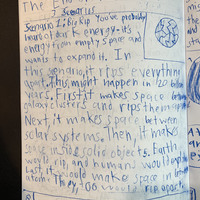 The En
Scenarios
Scenario 1: Big Rip You've probably
heard of dark energy - it's
energy from empty space and
wants to expand it. In
this scenario, it rips everything
apart. This might happen in 20 billion
years. First, it makes space between
galaxy clusters and rips them apart.
Next, it makes space between
solar systems. Then, it makes
space inside solid objects. Earth
would rip, and humans would rip
Last, it would make space in
atoms. They, too would rip apart.